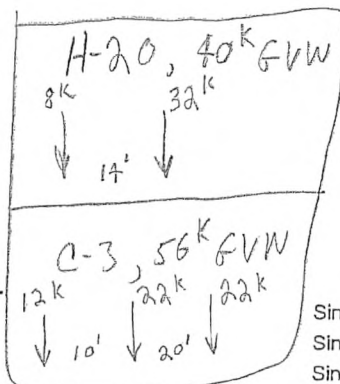 H-20, 40K GVW
8K 32K
14'
C-3, 56K GVW
12K 22K 22K
10' 20'
Sin
Sin
Sin